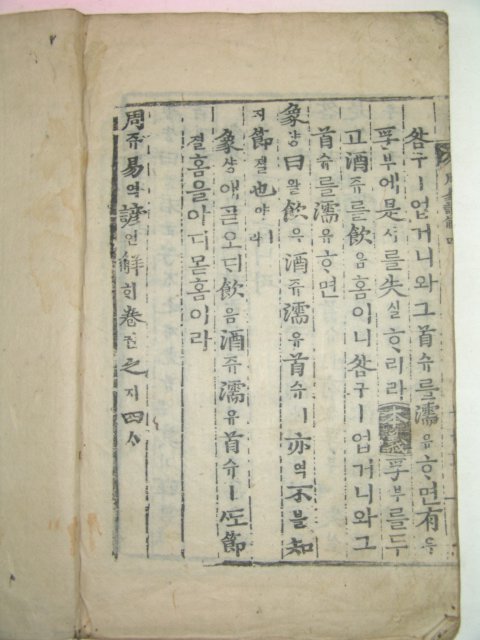 咎구ㅣ업거니와그首슈를濡유ᄒᆞ면有유
孚부에是시를失실ᄒᆞ리라【本義】孚부를두
고酒쥬를飮음홈이니咎구ㅣ업거니와그
首슈를濡유ᄒᆞ면
象샹曰왈飮음酒쥬濡유首슈ㅣ亦역不블知
지節졀也야ㅣ라
象샹애ᄀᆞᆯ오ᄃᆡ飮음酒쥬濡유首슈ㅣᄯᅩ節
졀홈을아디몯홈이라
周쥬易역諺언解ᄒᆡ卷권之지四ᄉᆞ